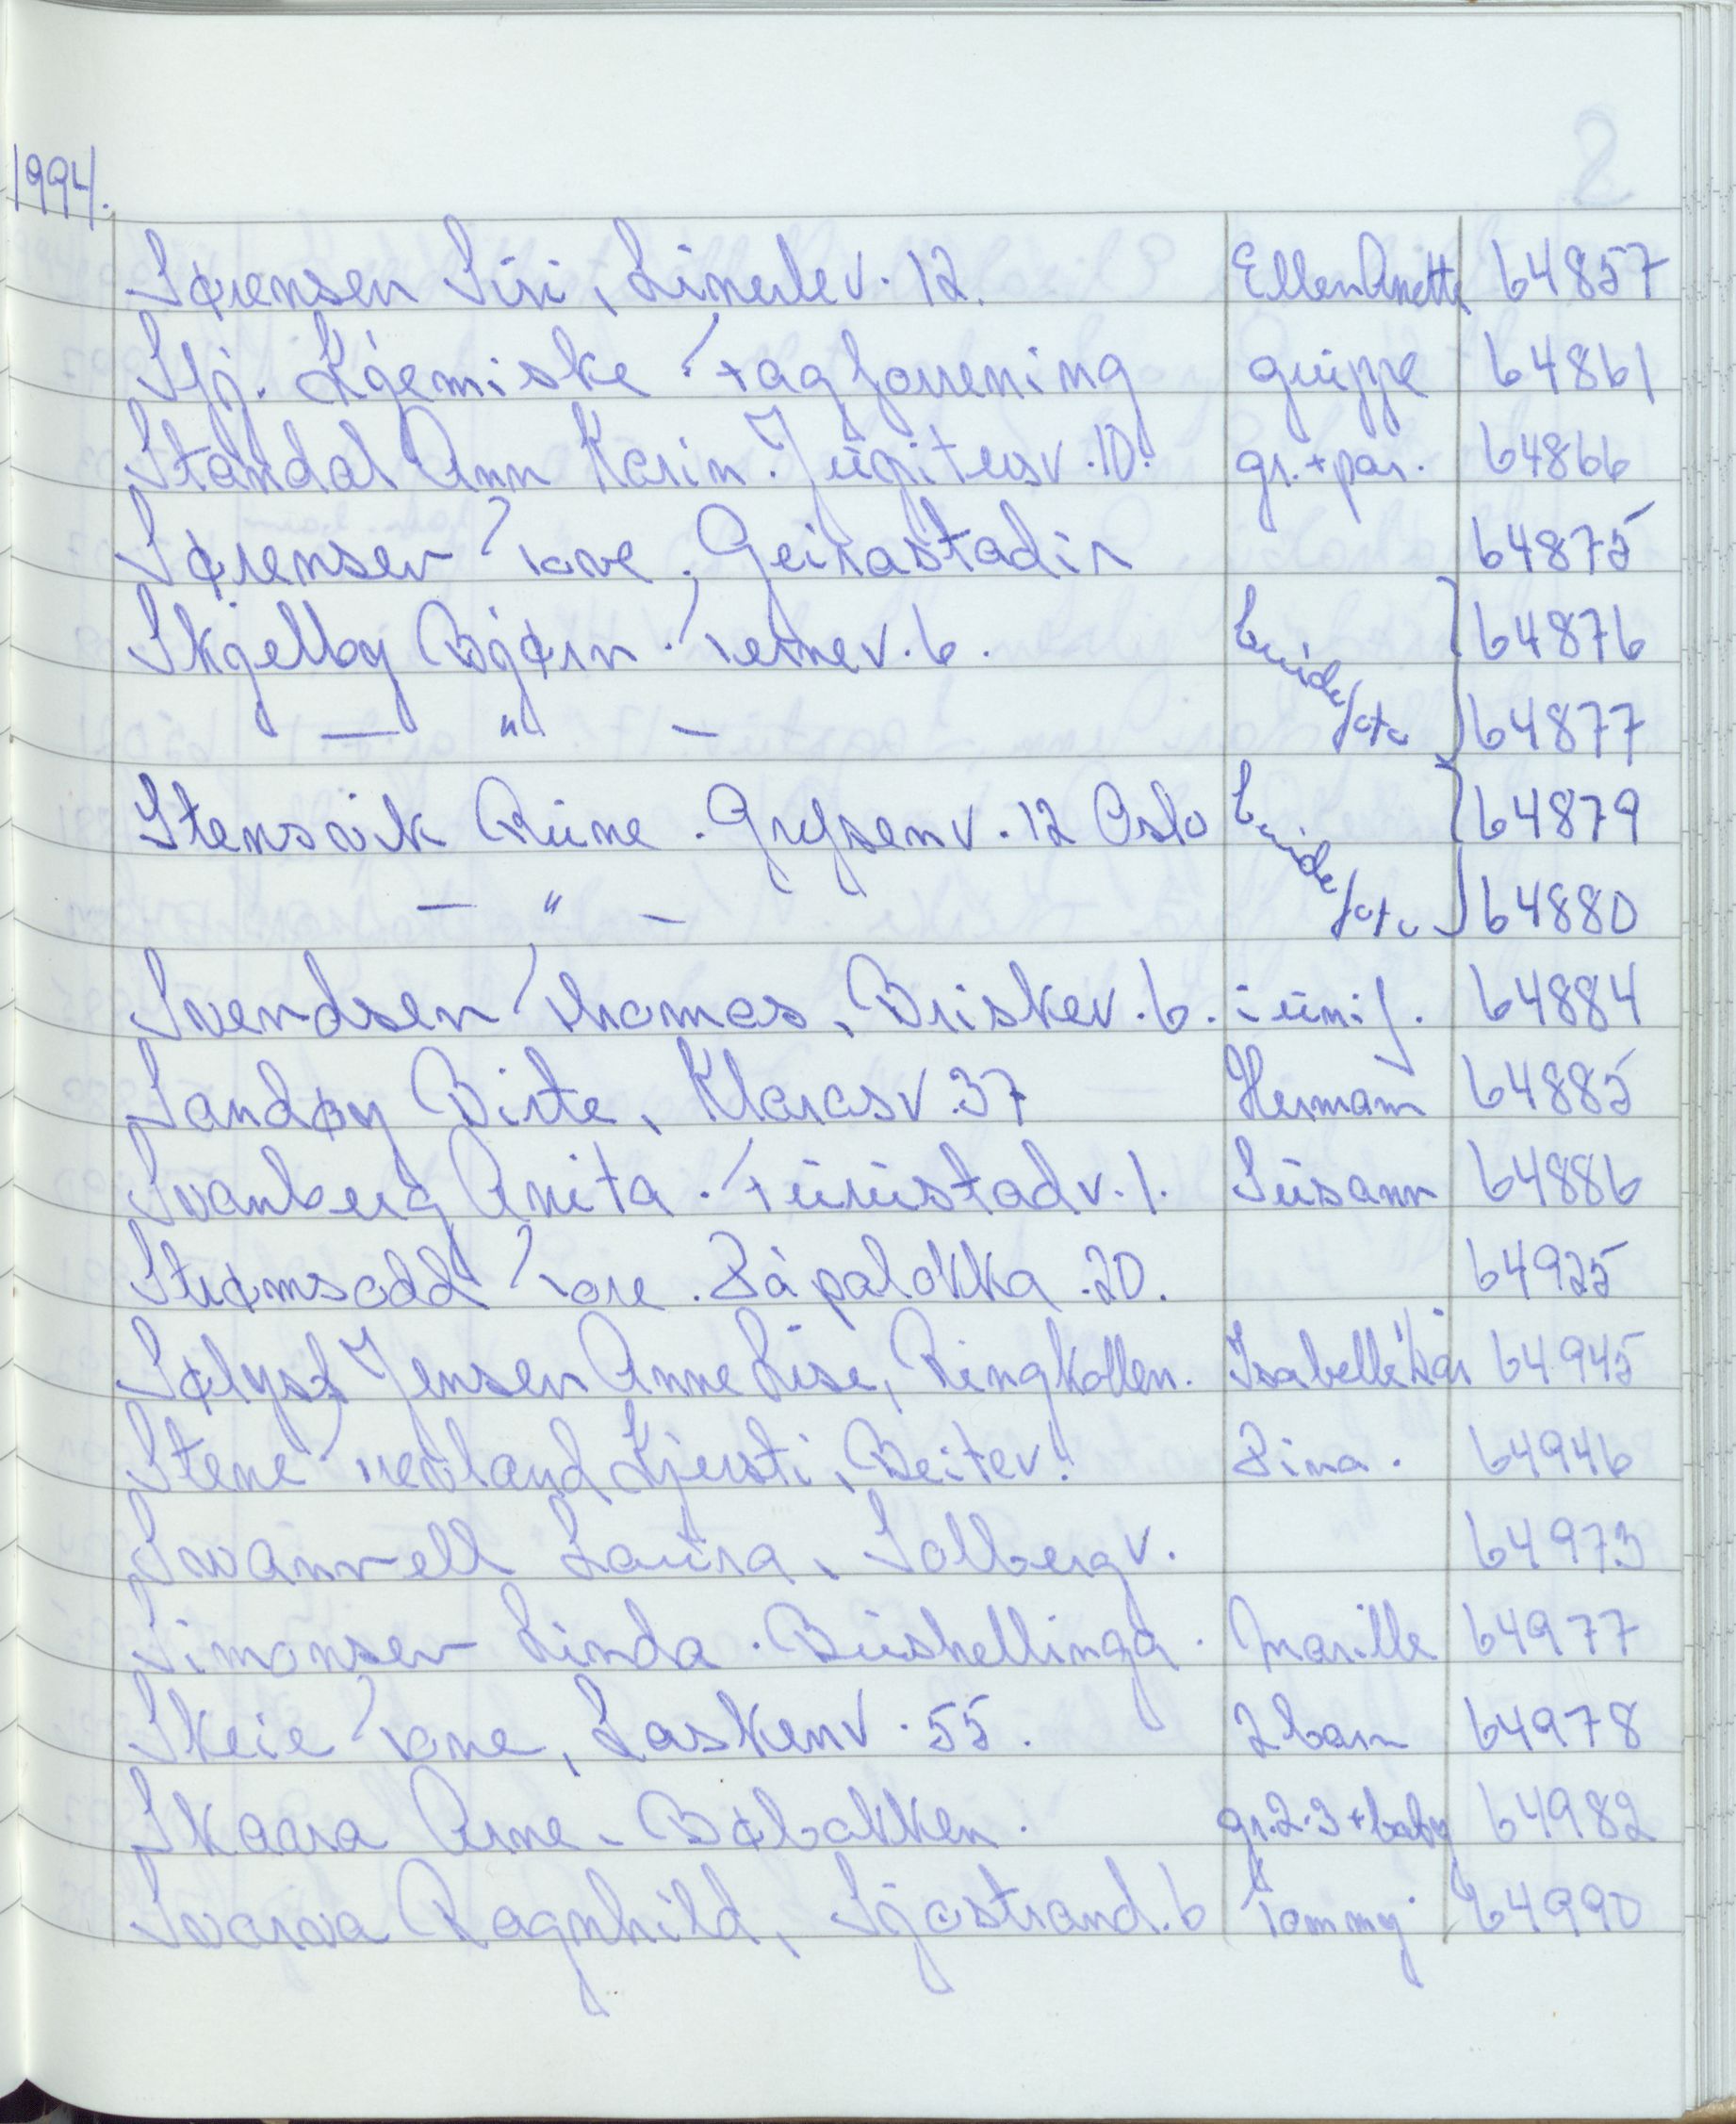 1994.
Sørensen Siri, Linerlev. 12. Ellen Anette 64857
Sfj. Kjemiske Fagforening gruppe 64861
Standal Ann Karin. Jupitersv. 10. gr. + par. 64866
Sørensen Tove. Geirastadir 64875
Skjelby Bjørn. Ternev. 6. brude 64876
— " — foto 64877
Stensvik Rune. Grefsenv. 12 Oslo brude 64879
— " — foto 64880
Svendsen Thomas, Briskev. 6. i unif. 64884
Sandøy Birte, Klarasv. 37 Hermann 64885
Svanberg Anita. Furustadv. 1. Susann 64886
Strømsodd Tore. Råpaløkka 20. 64925
Sølyst Jensen Anne Lise, Ringkollen. Isabelle 64945
Stene Kjersti, Beitev. Sina. 64946
Swannell Laura, Solbergv. 64973
Simonsen Linda. 64977
Skeie Tone, Laskenv. 55. 2 barn 64978
Skaara Arne - Bøbakken. gr. 2-3 + baby 64982
Svarva Ragnhild, Sjøstrand. 6 Tommy 64990